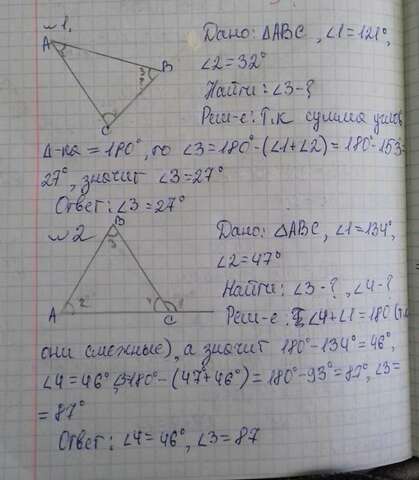 №1.
Дано: ΔABC, ∠1=121°,
∠2=32°
Найти: ∠3-?
Реш-е: Т.к сумма углов
Δ-ка = 180°, то ∠3=180°-(∠1+∠2)=180°-153=
27°, значит ∠3=27°
Ответ: ∠3=27°
A
2
B
3
C
№2
Дано: ΔABC, ∠1=134°,
∠2=47°
Найти: ∠3-?, ∠4-?
Реш-е. ∠4+∠1=180
они смежные), а значит 180°-134°=46°,
∠4=46° 180°-(47°+46°)=180°-93°=87°, ∠3=
=87°
Ответ: ∠4=46°, ∠3=87
B
3
A
2
4
1
C